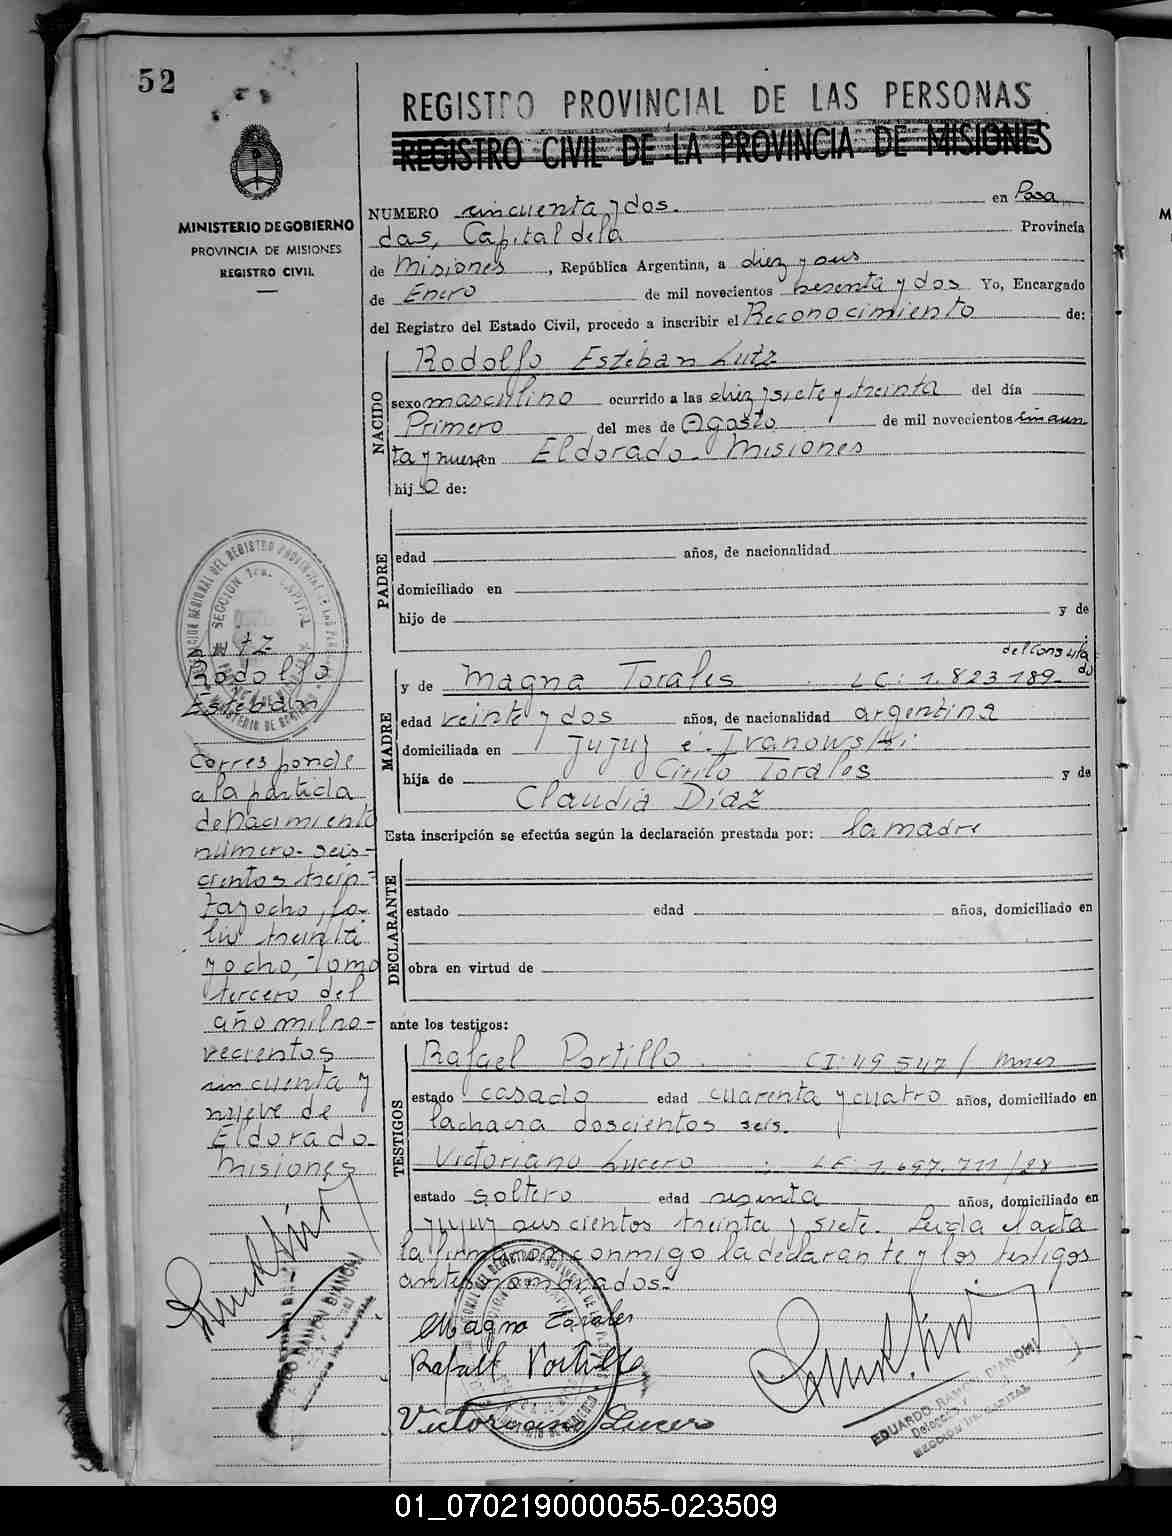 52
REGISTRO PROVINCIAL DE LAS PERSONAS
REGISTRO CIVIL DE LA PROVINCIA DE MISIONES
MINISTERIO DE GOBIERNO
PROVINCIA DE MISIONES
REGISTRO CIVIL
NUMERO cincuenta y dos. en Posa
das, Capital de la Provincia
de Misiones, República Argentina, a diez y seis
de Enero de mil novecientos sesenta y dos Yo, Encargado
del Registro del Estado Civil, procedo a inscribir el Reconocimiento de:
NACIDO
Rodolfo Esteban Lutz
sexo masculino ocurrido a las diez y siete y treinta del día
Primero del mes de Agosto de mil novecientos cincuen
ta y nueve en Eldorado - Misiones
hijo de:
PADRE
edad años, de nacionalidad
domiciliado en
hijo de y de
MADRE
del Consula
do
y de Magna Torales LC: 1.823.189
edad veinte y dos años, de nacionalidad argentina
domiciliada en Jujuy é Ivanowski
hija de Cirilo Torales y de
Claudia Díaz
Esta inscripción se efectúa según la declaración prestada por: la madre
DECLARANTE
estado edad años, domiciliado en
obra en virtud de
ante los testigos:
TESTIGOS
Rafael Portillo CI: 49.547 / Mnes
estado casado edad cuarenta y cuatro años, domiciliado en
la chacra doscientos seis.
Victoriano Lucero LE: 1.697.711/28
estado soltero edad años, domiciliado en
Jujuy seiscientos treinta y siete. Leída el acta
la firmaron conmigo la declarante y los testigos
antes nombrados.
Magna Torales
Rafael Portillo
Victoriano Lucero
EDUARDO RAMON BIANCHI
Delegado
SECCION 1ra. CAPITAL
Lutz
Rodolfo
Esteban
Corresponde
a la partida
de nacimiento
número seis-
cientos trein-
ta y ocho, fo-
lio treinta
y ocho, Tomo
tercero del
año mil no-
vecientos
cincuenta y
nueve de
Eldorado
Misiones
RAMON BIANCHI
01_070219000055-023509